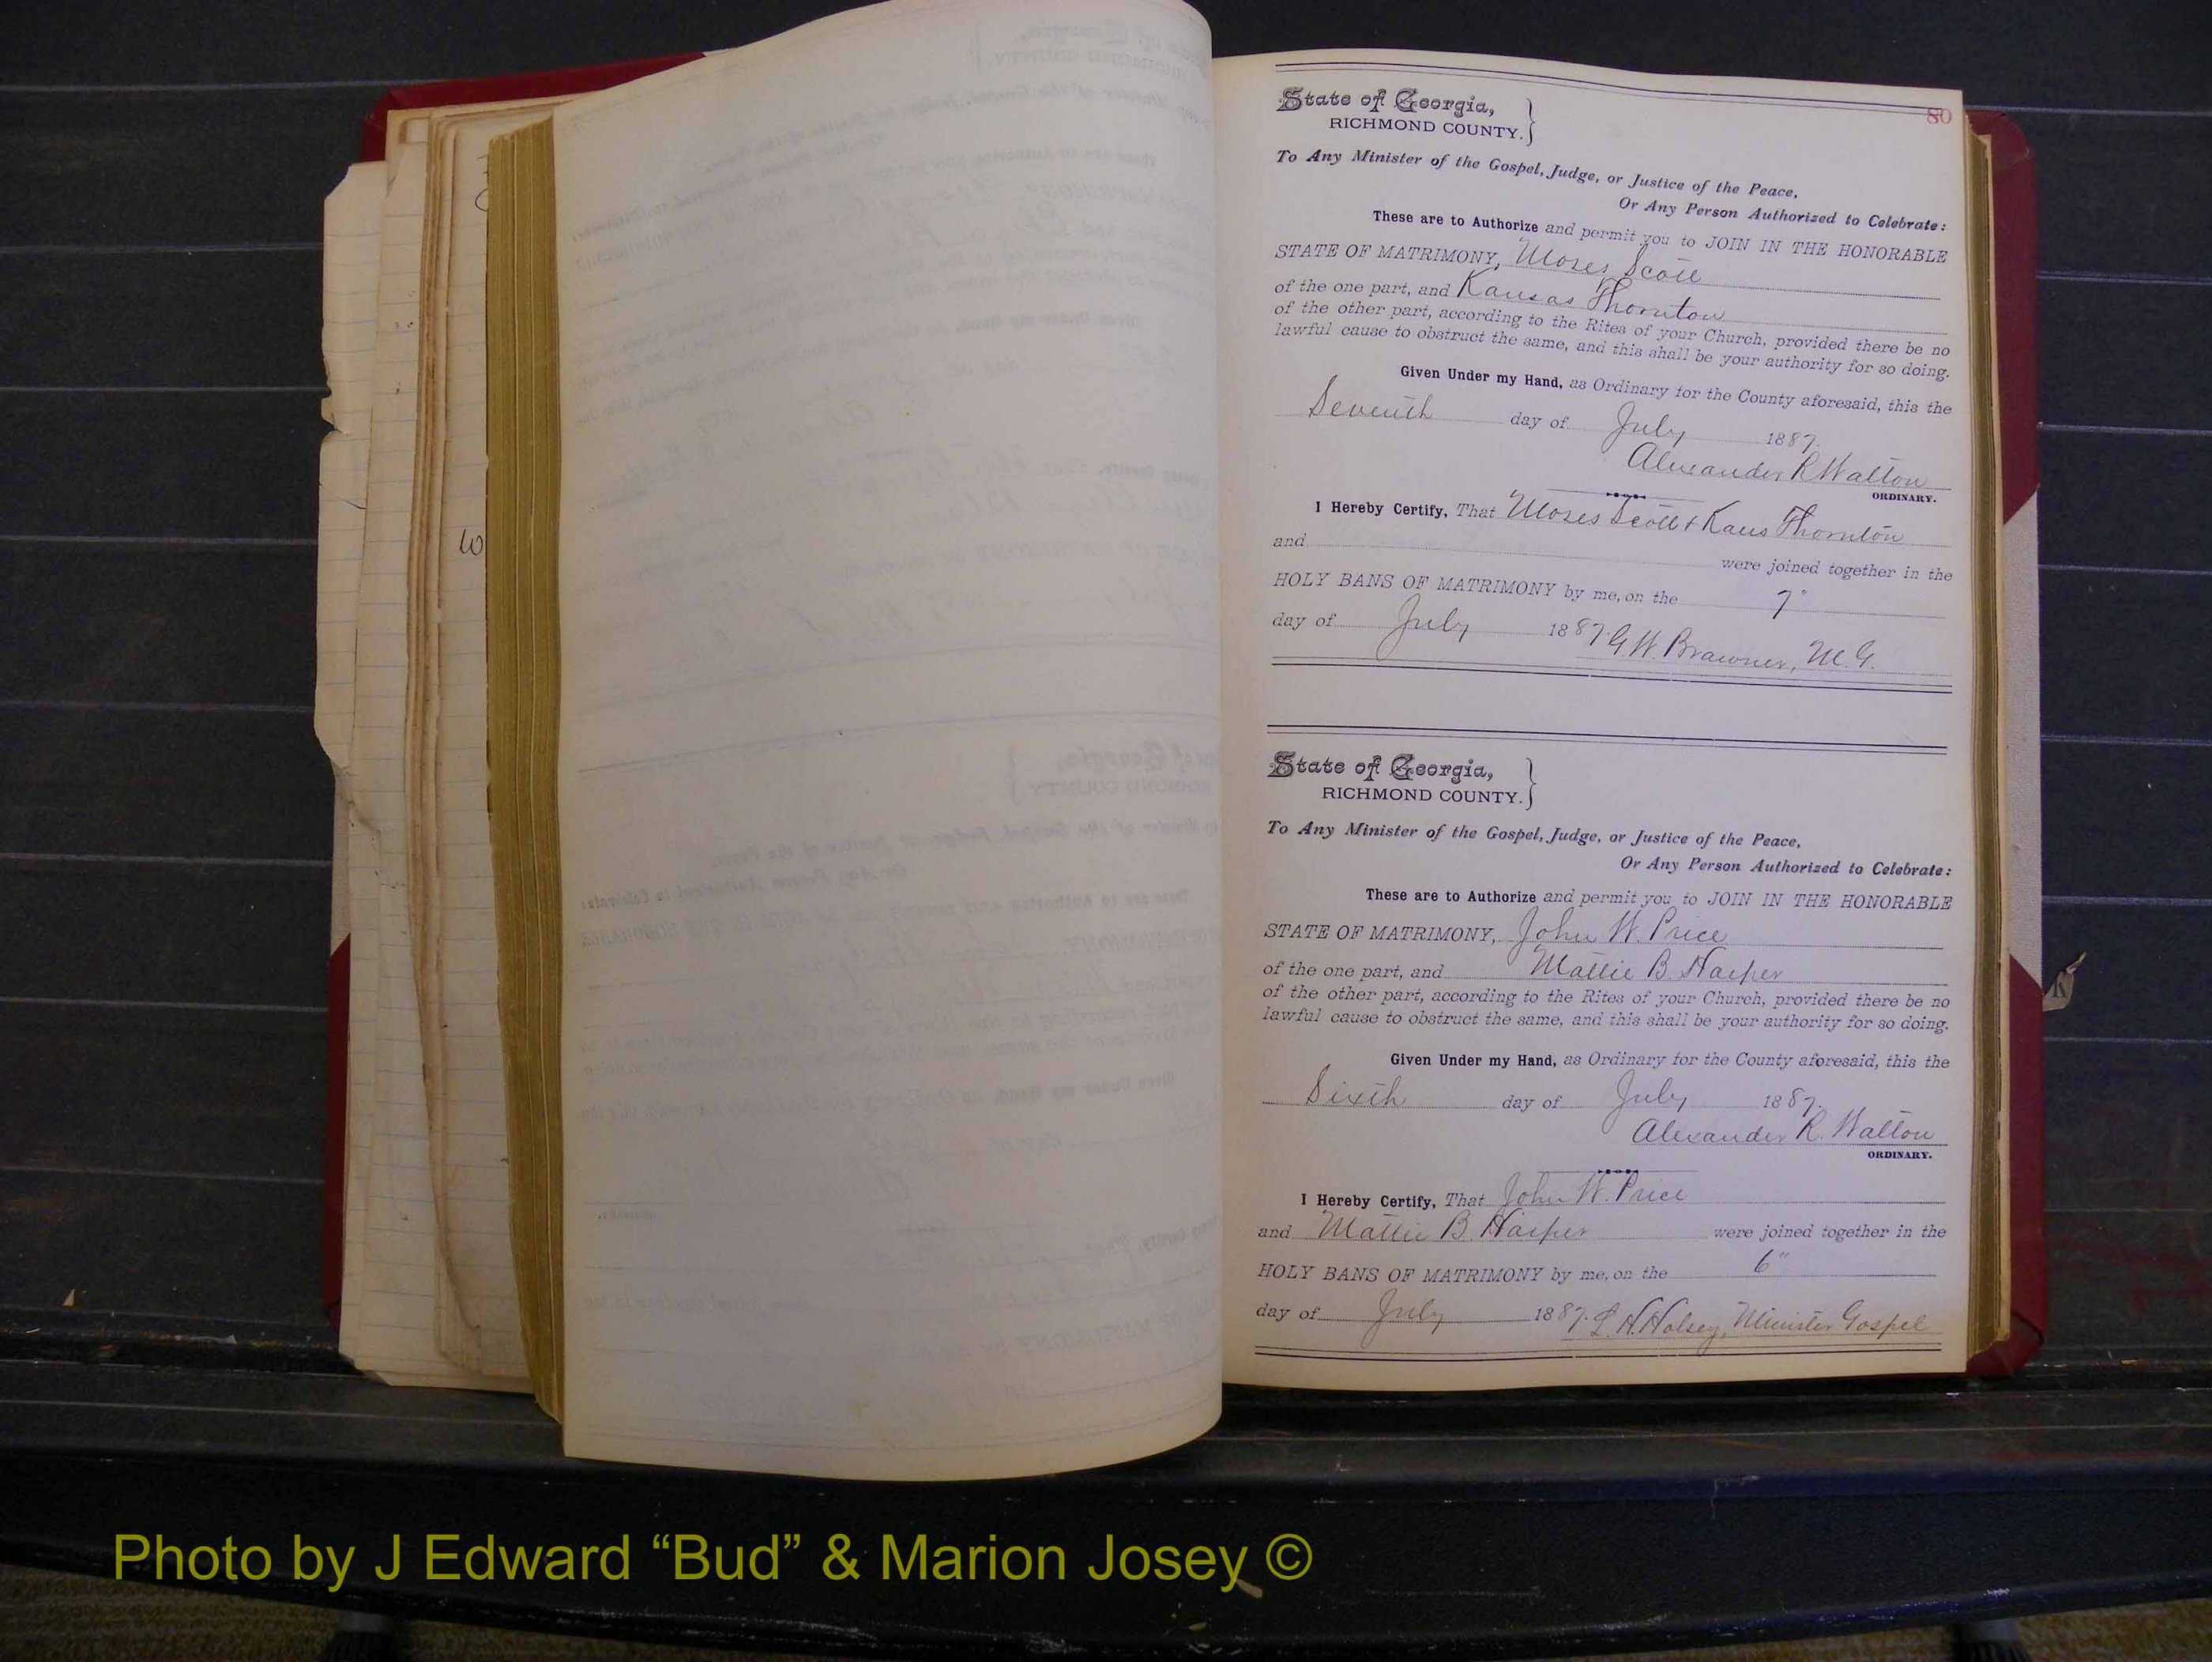 80
State of Georgia,
RICHMOND COUNTY.
To Any Minister of the Gospel, Judge, or Justice of the Peace,
Or Any Person Authorized to Celebrate:
These are to Authorize and permit you to JOIN IN THE HONORABLE
STATE OF MATRIMONY, Moses Scott
of the one part, and Kansas Thornton
of the other part, according to the Rites of your Church, provided there be no
lawful cause to obstruct the same, and this shall be your authority for so doing.
Given Under my Hand, as Ordinary for the County aforesaid, this the
Seventh day of July 1887.
Alexander R Walton
ORDINARY.
I Hereby Certify, That Moses Scott & Kans Thornton
and were joined together in the
HOLY BANS OF MATRIMONY by me, on the 7"
day of July 1887. G W. Brawner, M. G.
State of Georgia,
RICHMOND COUNTY.
To Any Minister of the Gospel, Judge, or Justice of the Peace,
Or Any Person Authorized to Celebrate:
These are to Authorize and permit you to JOIN IN THE HONORABLE
STATE OF MATRIMONY, John W. Price
of the one part, and Mattie B. Harper
of the other part, according to the Rites of your Church, provided there be no
lawful cause to obstruct the same, and this shall be your authority for so doing.
Given Under my Hand, as Ordinary for the County aforesaid, this the
Sixth day of July 1887.
Alexander R. Walton
ORDINARY.
I Hereby Certify, That John W. Price
and Mattie B. Harper were joined together in the
HOLY BANS OF MATRIMONY by me, on the 6"
day of July 1887. L. H. Holsey, Minister Gospel
Photo by J Edward “Bud” & Marion Josey ©